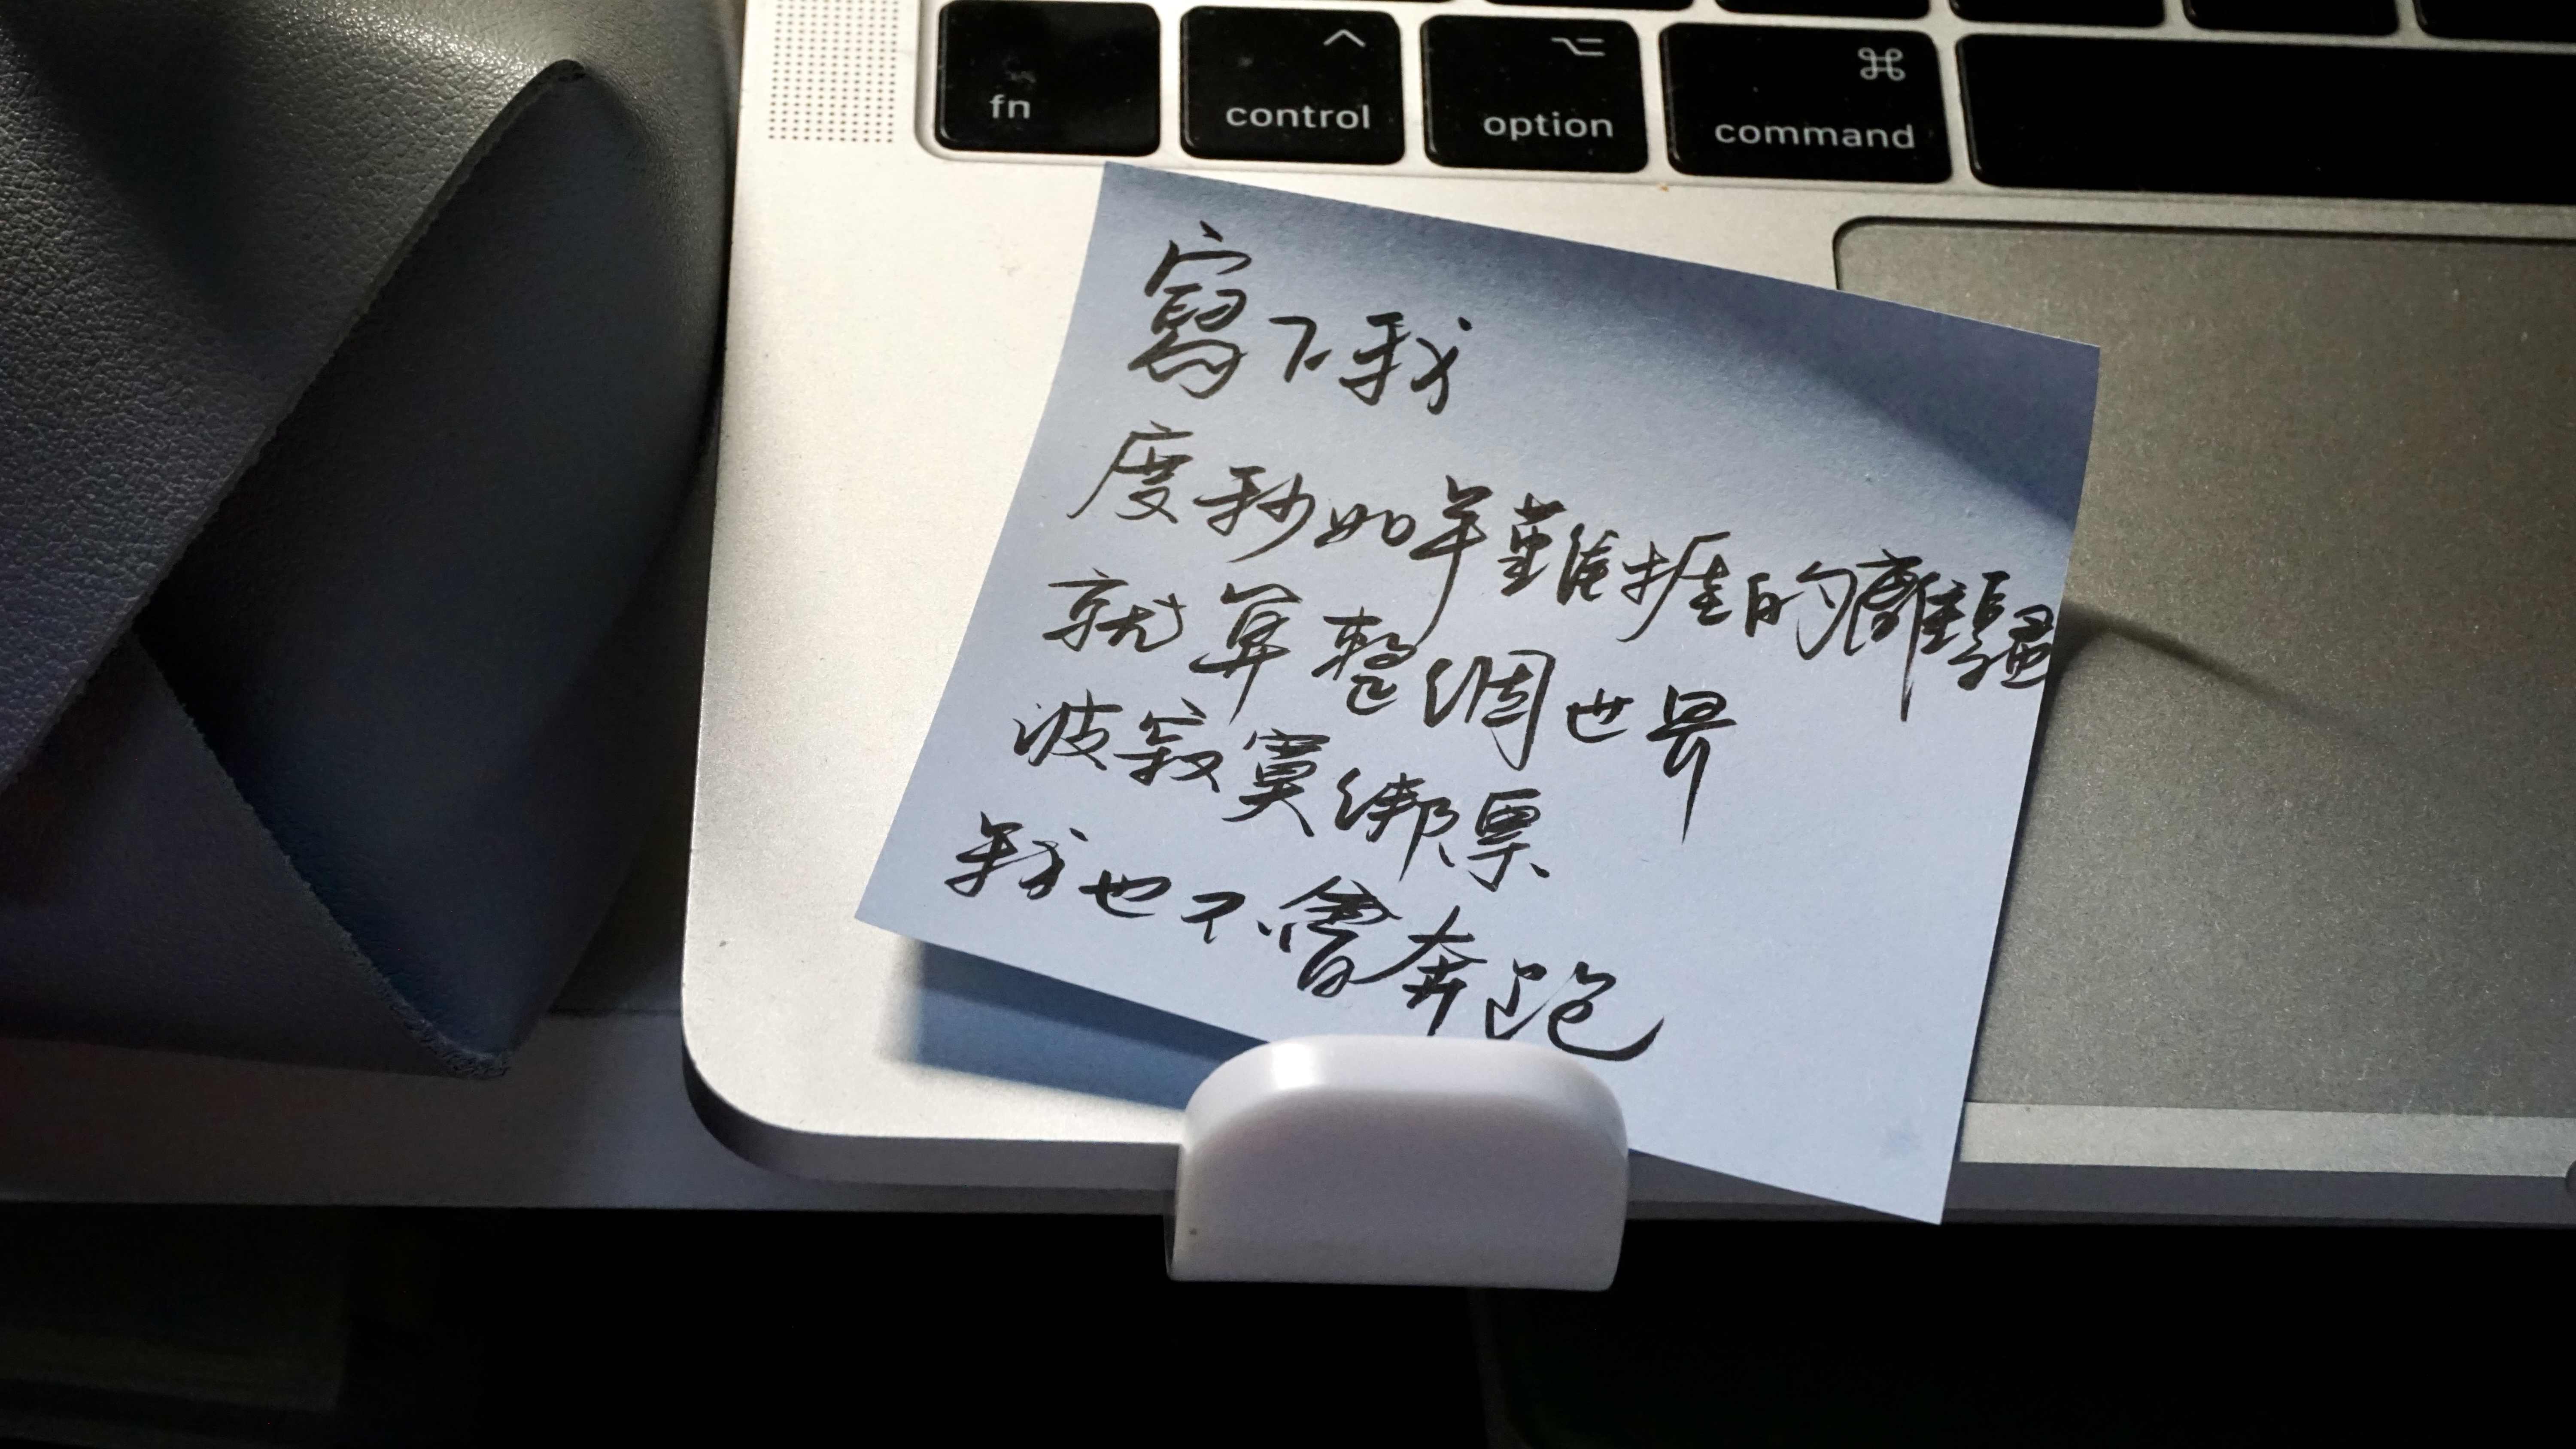 fn control option command
寫下我
度秒如年難捱的離騷
就算整個世界
被寂寞綁票
我也不會奔跑